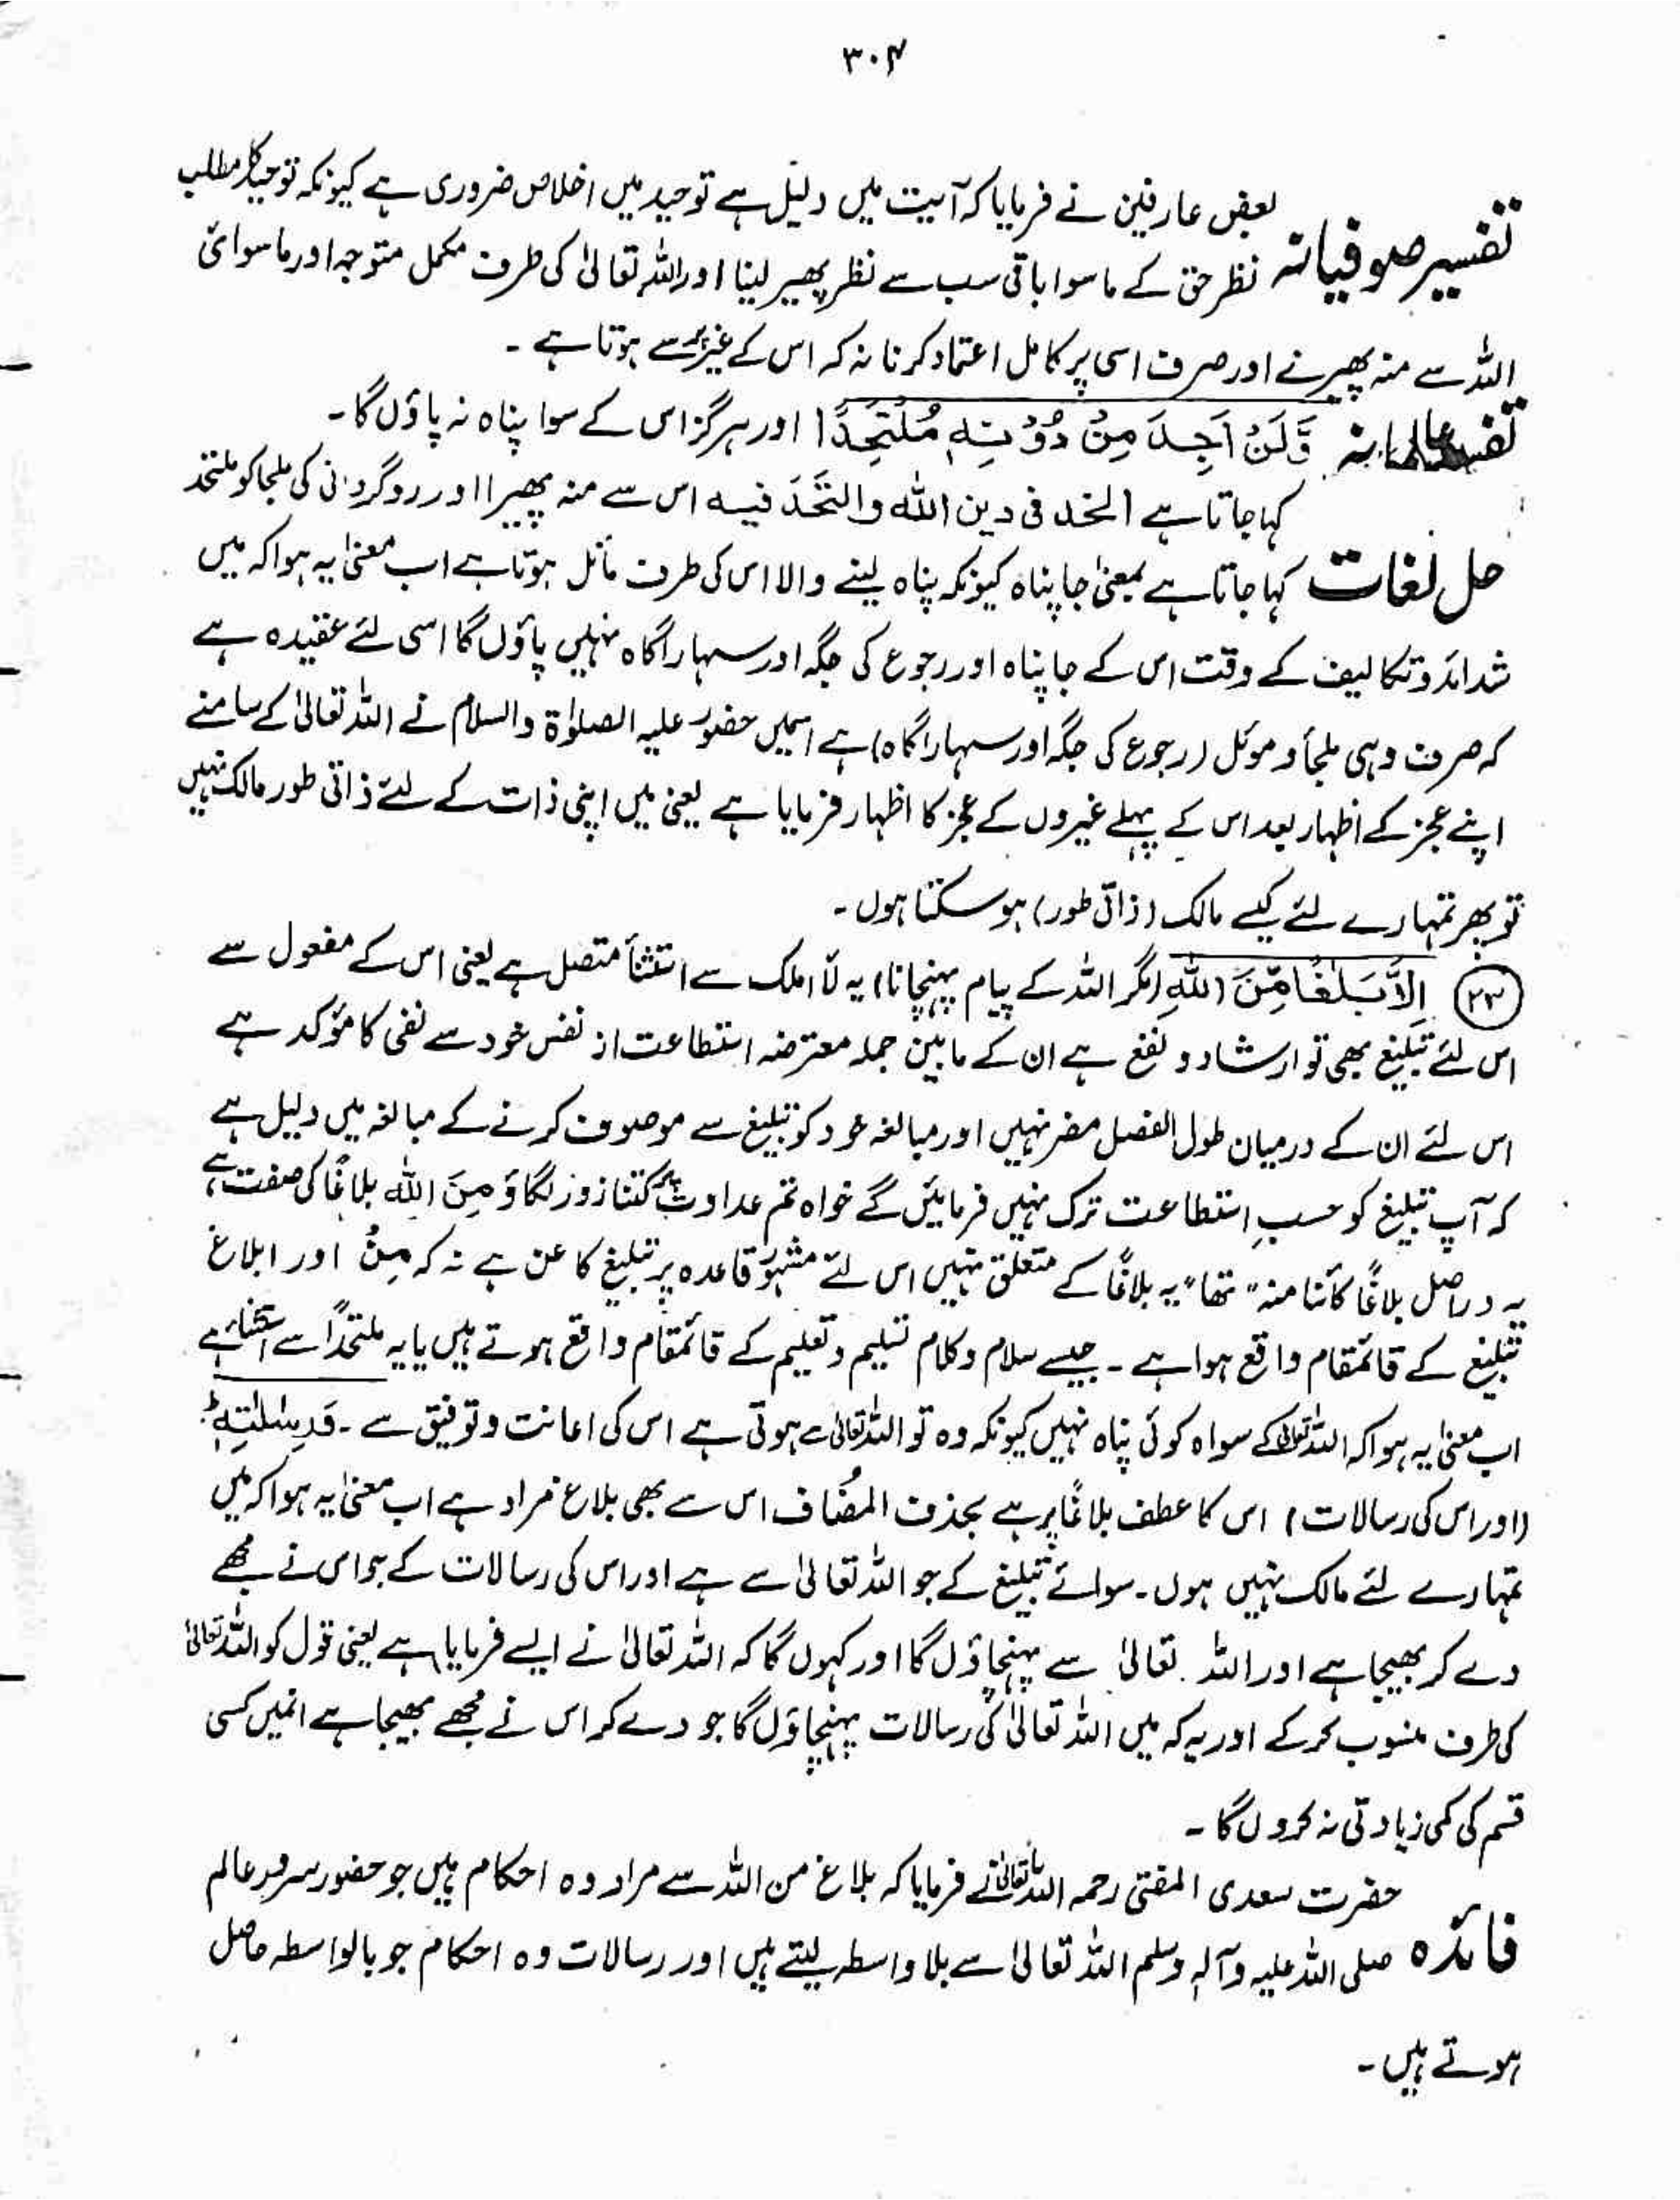 ۳۰۴
تفسیر صوفیانہ بعض عارفین نے فرمایا کہ آیت میں دلیل ہے توحید میں اخلاص ضروری ہے کیونکہ توحید کا مطلب
نظر حق کے ماسوا باقی سب سے نظر پھیر لینا اور اللہ تعالیٰ کی طرف مکمل متوجہ اور ماسوائ
اللہ سے منہ پھیرنے اور صرف اسی پر کامل اعتماد کرنا نہ کہ اس کے غیر پر سے ہوتا ہے ۔
تفسیر عالمانہ وَّلَنْ اَجِدَ مِنْ دُوْنِہٖ مُلْتَحَدًا اور ہرگز اس کے سوا پناہ نہ پاؤں گا ۔
کہا جاتا ہے الحد فی دین اللہ والتحد فیہ اس سے منہ پھیرا اور روگردانی کی ملجا کو ملتحد
حل لغات کہا جاتا ہے بمعنیٰ جا پناہ کیونکہ پناہ لینے والا اس کی طرف مائل ہوتا ہے اب معنیٰ یہ ہوا کہ میں
شدائد و تکالیف کے وقت اس کے جا پناہ اور رجوع کی جگہ اور سہارا گاہ نہیں پاؤں گا اسی لئے عقیدہ ہے
کہ صرف وہی ملجأ و موئل (رجوع کی جگہ اور سہارا گاہ) ہے اسمیں حضور علیہ الصلوٰۃ والسلام نے اللہ تعالیٰ کے سامنے
اپنے عجز کے اظہار بعد اس کے پہلے غیروں کے عجز کا اظہار فرمایا ہے یعنی میں اپنی ذات کے لئے ذاتی طور مالک نہیں
تو پھر تمہارے لئے کیسے مالک (ذاتی طور) ہو سکتا ہوں ۔
۲۳ اِلَّا بَلٰغًا مِّنَ اللّٰہِ (مگر اللہ کے پیام پہنچانا) یہ لا املک سے استثنأ متصل ہے یعنی اس کے مفعول سے
اس لئے تبلیغ بھی تو ارشاد و نفع ہے ان کے مابین جملہ معترضہ استطاعت از نفس خود سے نفی کا مؤکد ہے
اس لئے ان کے درمیان طول الفصل مضر نہیں اور مبالغہ خود کو تبلیغ سے موصوف کرنے کے مبالغہ میں دلیل ہے
کہ آپ تبلیغ کو حسبِ استطاعت ترک نہیں فرمائیں گے خواہ تم عداوت پر کتنا زور لگاؤ مِنَ اللہ بلاغًا کی صفت ہے
یہ دراصل بلاغًا کائنا منہ " تھا " یہ بلاغًا کے متعلق نہیں اس لئے مشہور قاعدہ پر تبلیغ کا عن ہے نہ کہ مِنْ اور ابلاغ
تبلیغ کے قائمقام واقع ہوا ہے ۔ جیسے سلام و کلام تسلیم و تعلیم کے قائمقام واقع ہوتے ہیں یا یہ ملتحدًا سے استثناء ہے
اب معنیٰ یہ ہوا کہ اللہ تعالیٰ کے سواہ کوئی پناہ نہیں کیونکہ وہ تو اللہ تعالیٰ سے ہوتی ہے اس کی اعانت و توفیق سے ۔ وَرِسٰلٰتِہٖ
(اور اس کی رسالات) اس کا عطف بلاغًا پر ہے بحذف المضاف اس سے بھی بلاغ مراد ہے اب معنیٰ یہ ہوا کہ میں
تمہارے لئے مالک نہیں ہوں ۔ سوائے تبلیغ کے جو اللہ تعالیٰ سے ہے اور اس کی رسالات کے جو اس نے مجھے
دے کر بھیجا ہے اور اللہ تعالیٰ سے پہنچاؤں گا اور کہوں گا کہ اللہ تعالیٰ نے ایسے فرمایا ہے یعنی قول کو اللہ تعالیٰ
کی طرف منسوب کرکے اور یہ کہ میں اللہ تعالیٰ کی رسالات پہنچاؤں گا جو دے کر اس نے مجھے بھیجا ہے انمیں کسی
قسم کی کمی زیادتی نہ کروں گا ۔
حضرت سعدی المفتی رحمہ اللہ تعالیٰ نے فرمایا کہ بلاغ من اللہ سے مراد وہ احکام ہیں جو حضور سرورِ عالم
فائدہ صلی اللہ علیہ وآلہ وسلم اللہ تعالیٰ سے بلاواسطہ لیتے ہیں اور رسالات وہ احکام جو بالواسطہ حاصل
ہوتے ہیں ۔